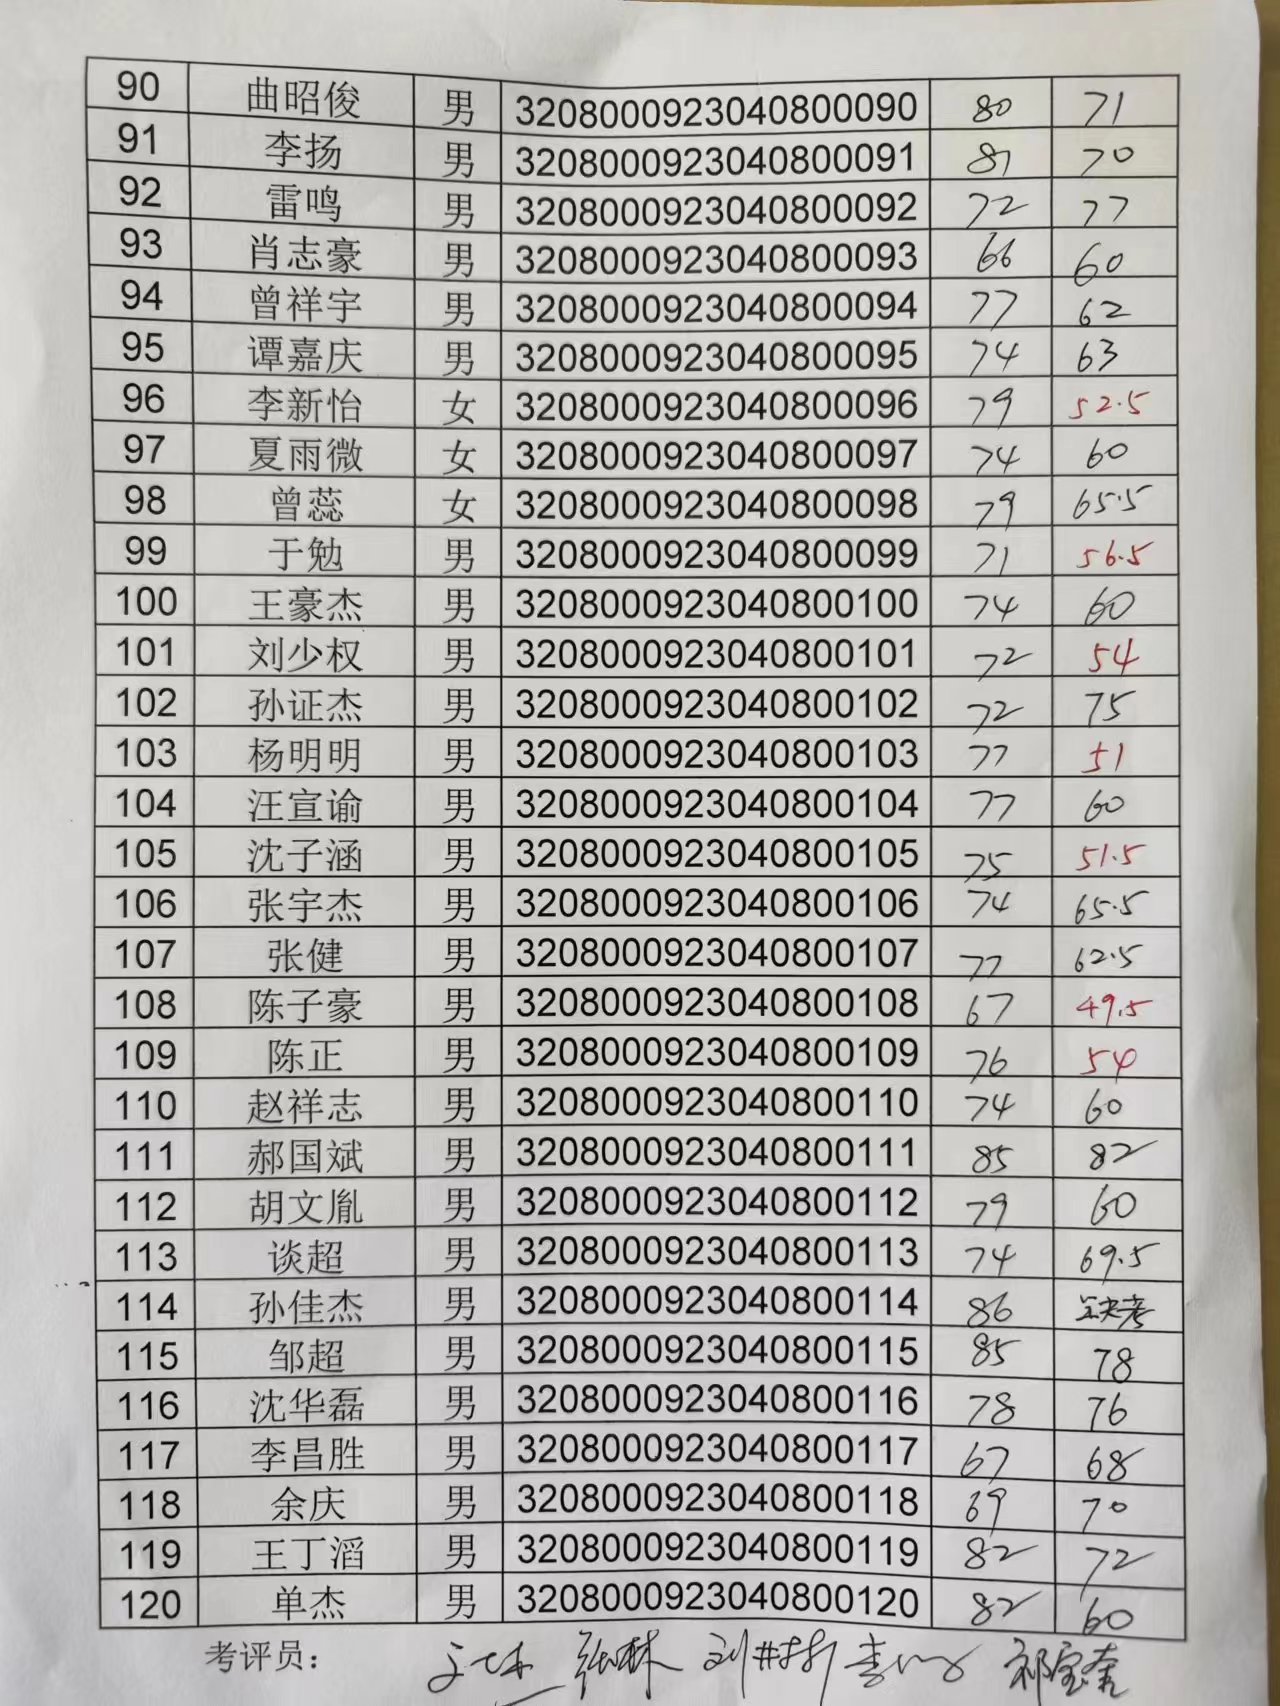 90 曲昭俊 男 3208000923040800090 80 71
91 李扬 男 3208000923040800091 81 70
92 雷鸣 男 3208000923040800092 72 77
93 肖志豪 男 3208000923040800093 66 60
94 曾祥宇 男 3208000923040800094 77 62
95 谭嘉庆 男 3208000923040800095 74 63
96 李新怡 女 3208000923040800096 79 52.5
97 夏雨微 女 3208000923040800097 74 60
98 曾蕊 女 3208000923040800098 79 65.5
99 于勉 男 3208000923040800099 71 56.5
100 王豪杰 男 3208000923040800100 74 60
101 刘少权 男 3208000923040800101 72 54
102 孙证杰 男 3208000923040800102 72 75
103 杨明明 男 3208000923040800103 77 51
104 汪宣谕 男 3208000923040800104 77 60
105 沈子涵 男 3208000923040800105 75 51.5
106 张宇杰 男 3208000923040800106 74 65.5
107 张健 男 3208000923040800107 77 62.5
108 陈子豪 男 3208000923040800108 67 49.5
109 陈正 男 3208000923040800109 76 54
110 赵祥志 男 3208000923040800110 74 60
111 郝国斌 男 3208000923040800111 85 82
112 胡文胤 男 3208000923040800112 79 60
113 谈超 男 3208000923040800113 74 69.5
114 孙佳杰 男 3208000923040800114 86 缺考
115 邹超 男 3208000923040800115 85 78
116 沈华磊 男 3208000923040800116 78 76
117 李昌胜 男 3208000923040800117 67 68
118 余庆 男 3208000923040800118 69 70
119 王丁滔 男 3208000923040800119 82 72
120 单杰 男 3208000923040800120 82 60
考评员： 张林 祁宝奎